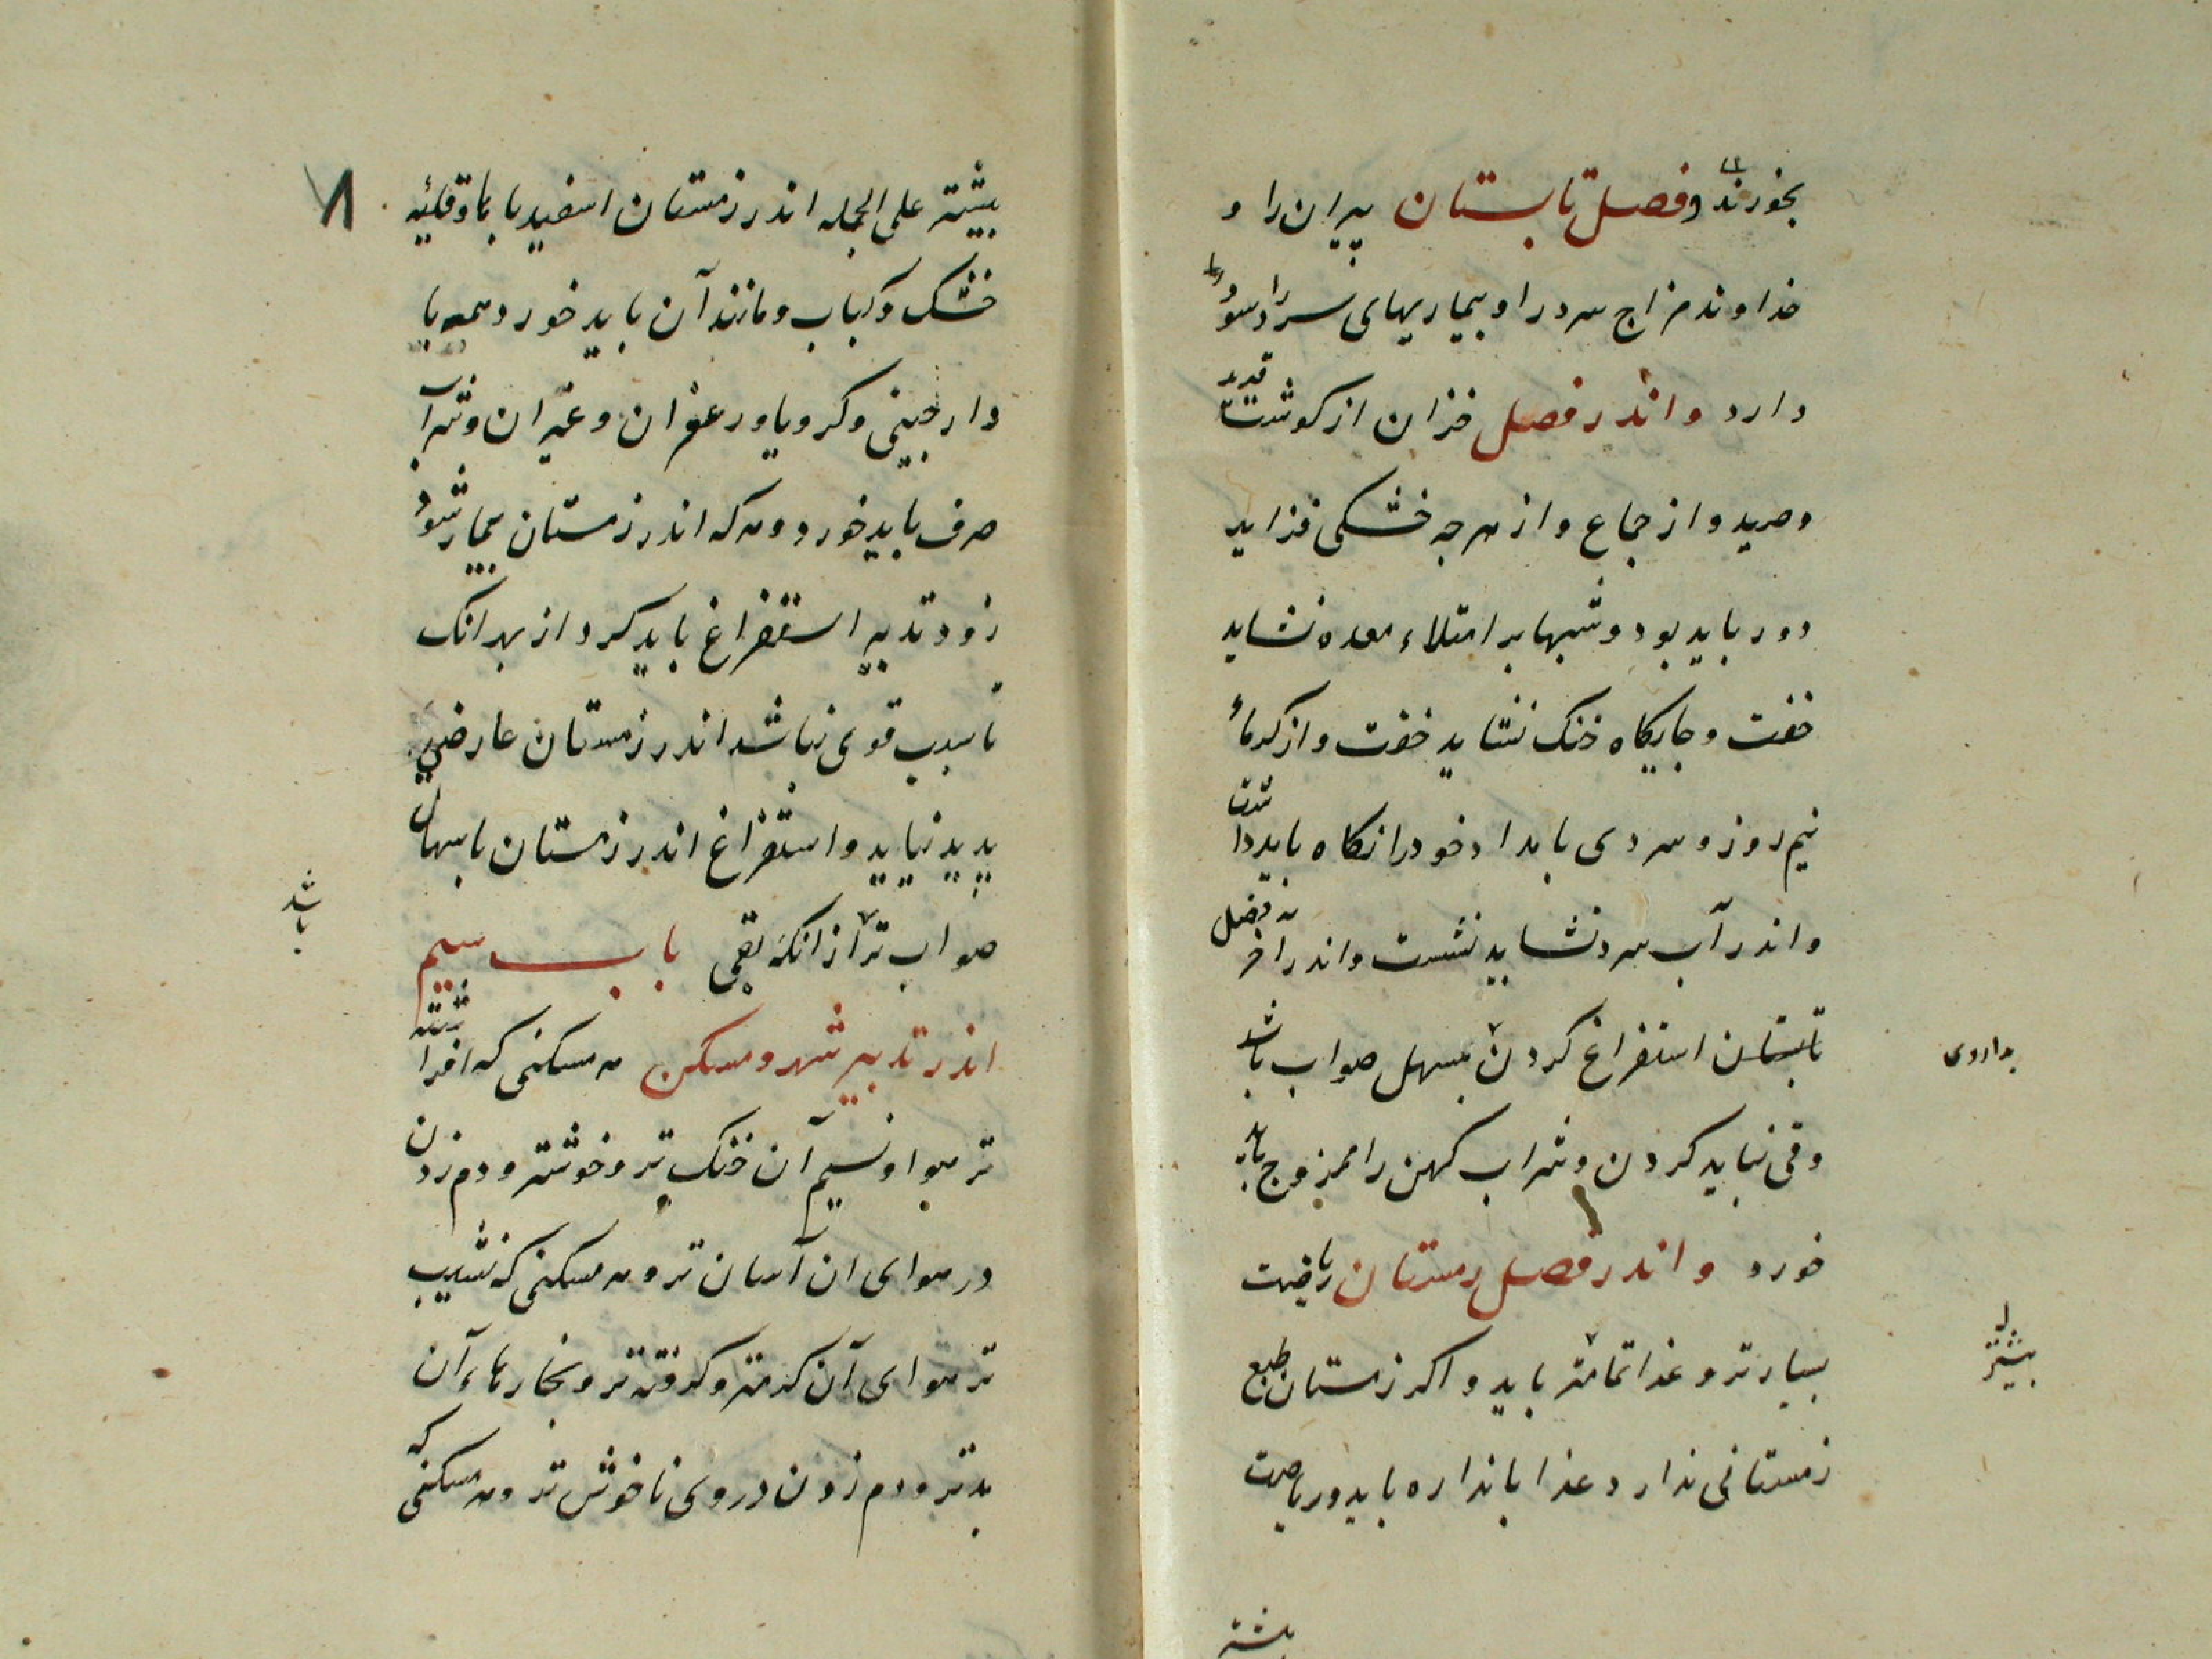 بخورند و فصل تابستان پیران را و
خداوند مزاج سرد را و بیماریهای سرد را سود
دارد و اندر فصل خزان از کوشت قدید
و صید و از جماع و از هرچه خشکی فزاید
دور باید بود و شبها بر امتلاء معده نشاید
خفت و جایکاه خنک نشاید خفت و از کرماء
نیم روز و سردی بامداد خود را نکاه باید داشت
و اندر آب سرد نشاید نشست و اندر آخر فصل
تابستان استفراغ کردن بمسهل صواب باشد
بداروی
وقی نباید کردن و شراب کهن را ممزوج باید
خورد و اندر فصل زمستان ریاضت
بسیارتر و غذا تمامتر باید و اکر زمستان طبع
بیشتر
زمستانی ندارد غذا باندازه باید و ریاضت
بیشتر
۸
بیشتر علی الجمله اندر زمستان اسفیدبا باو قلیه
خشک و کباب و مانند آن باید خورد همه با
دارچینی و کرویا و زعفران و غیر آن و شراب
صرف باید خورد و هر که اندر زمستان بیمار شود
زود تدبیر استفراغ باید کرد از بهر آنک
تا سبب قوی نباشد اندر زمستان عارضی
پدید نیاید و استفراغ اندر زمستان باسهال
صواب تر از انکه بقی باب سیم
باشد
اندر تدبیر شهر و مسکن هر مسکنی که افراشته
تر هوا و نسیم آن خنک تر و خوشتر و دم زدن
در هوای ان آسان تر و هر مسکنی که نشیب
تر هوای آن کرمتر و کرفته تر و بخارهاء آن
بدتر و دم زدن در وی ناخوش تر و هر مسکنی که